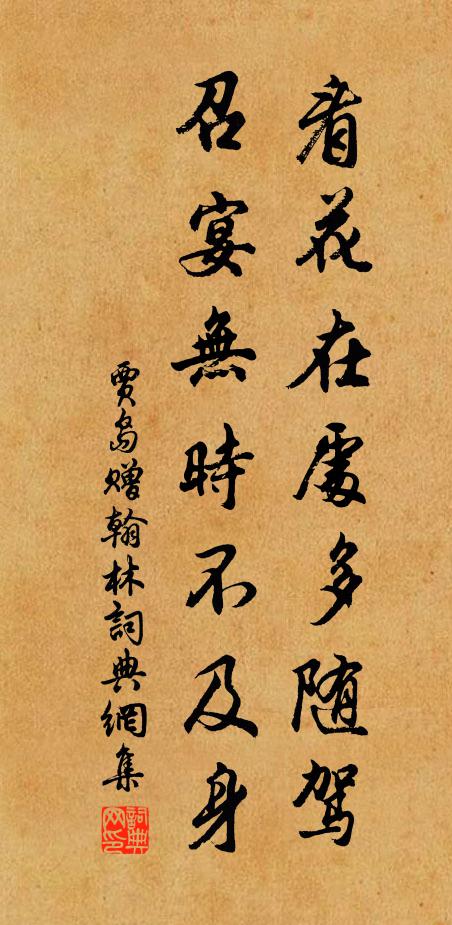 看花在處多随駕
召宴無時不及身
賈島贈翰林詞典網集
詞典網印